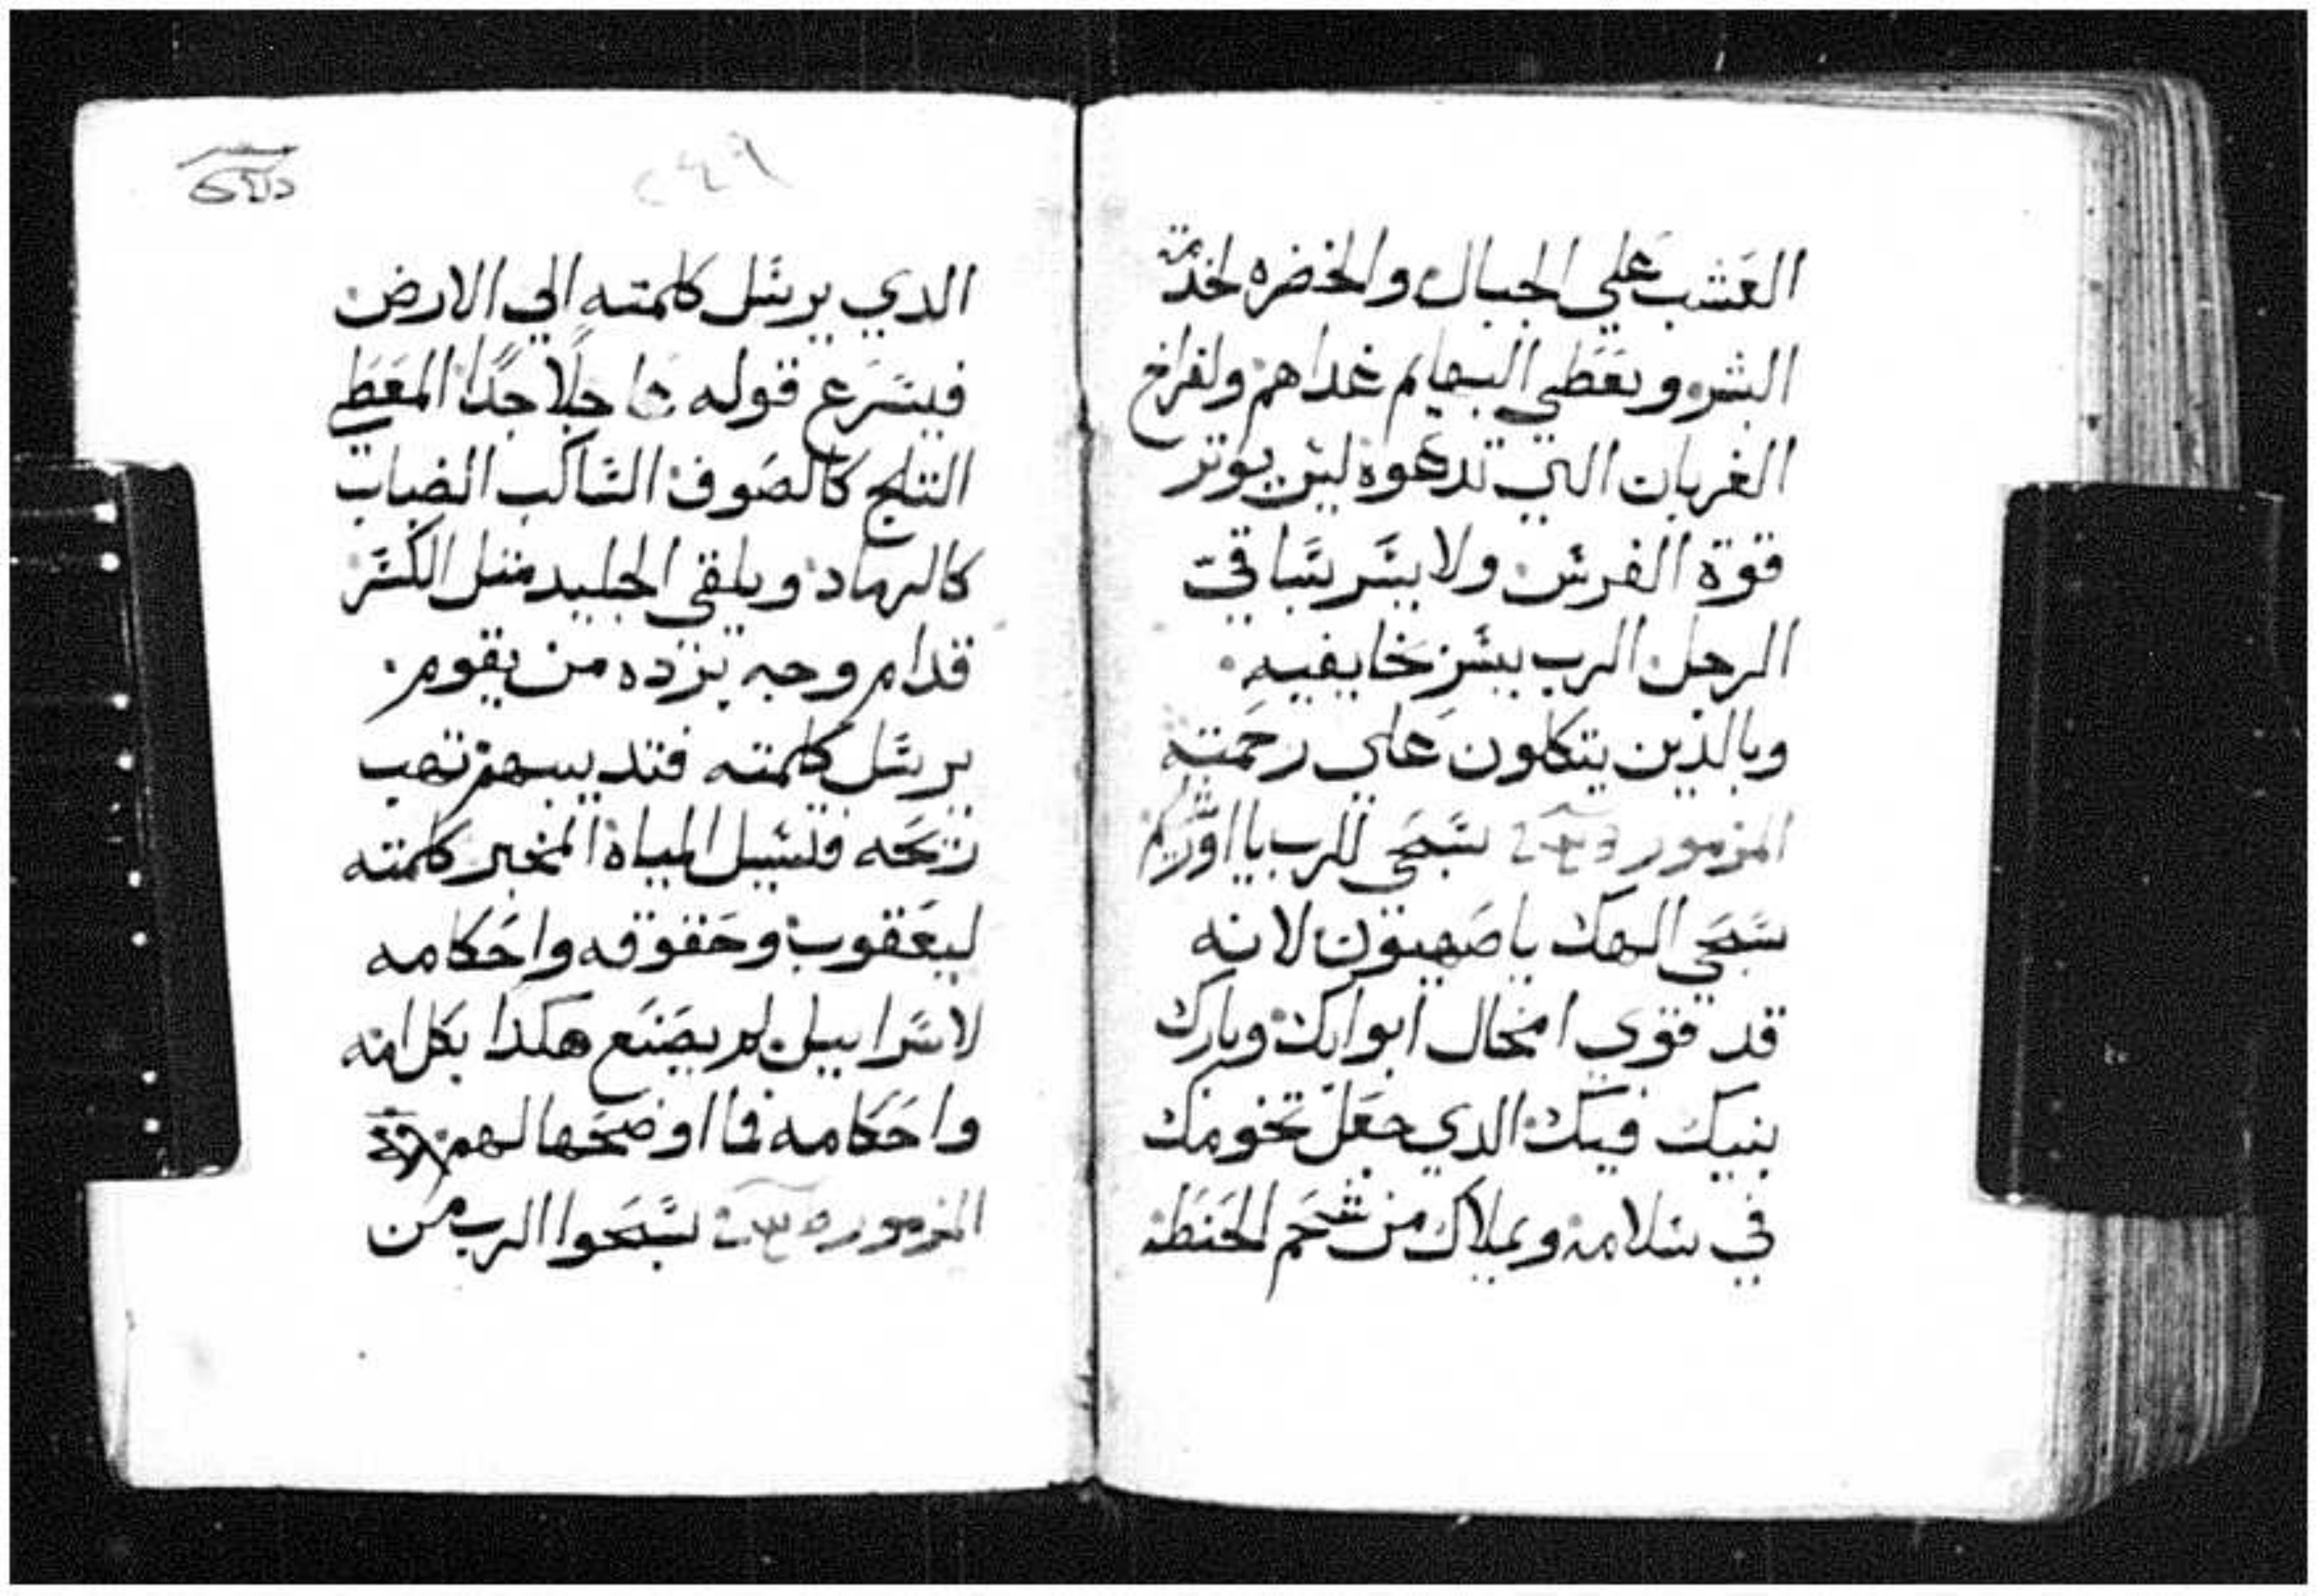 العشب علي الجبال والخضره لخدمة
البشر ويعطي البهايم غداهم ولفراخ
الغربان التي تدعوه ليس يوتر
قوة الفرس ولا يسر بساقي
الرجل الرب يسر بخايفيه
وبالذين يتكلون علي رحمته
المزمور سبحي للرب يا اورشليم
سبحي الهك يا صهيون لانه
قد قوي امخال ابوابك وبارك
بنيك فيك الدي جعل تخومك
في سلامه ويملاك من شحم الحنطه
٢٤٦
الدي يرسل كلمته الي الارض
فيسرع قوله عاجلا جدا المعطي
التلج كالصوف الساكب الضباب
كالرماد ويلقي الجليد متل الكسر
قدام وجه برده من يقوم
يرسل كلمته فتديبهم تهب
ريحه فتسيل المياه المخبر كلمته
ليعقوب وحقوقه واحكامه
لاسراييل لم يصنع هكذا بكل امه
واحكامه فما اوضحها لهم
المزمور سبحوا الرب من